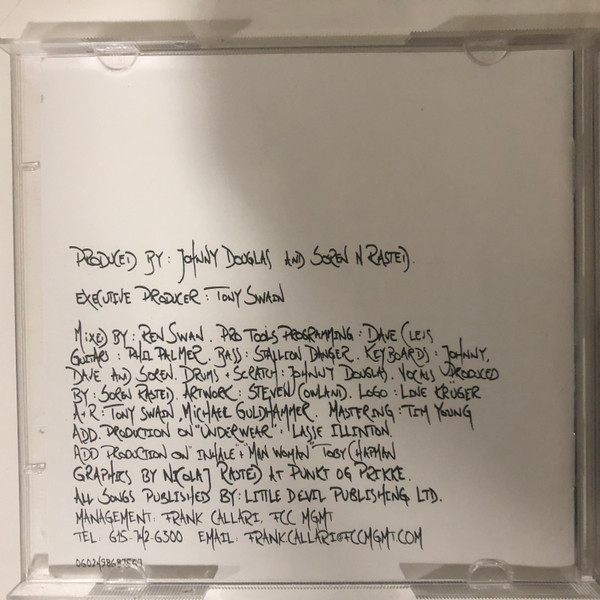 PRODUCED BY: JOHNNY DOUGLAS AND SOREN N RASTED.
EXECUTIVE PRODUCER: TONY SWAIN
MIXED BY: REN SWAN. PRO TOOLS PROGRAMMING: DAVE CLEIS
GUITARS: PHIL PALMER. BASS: STALLION DANGER. KEYBOARDS: JOHNNY,
DAVE AND SOREN. DRUMS + SCRATCH: JOHNNY DOUGLAS. VOCALS PRODUCED
BY: SOREN RASTED. ARTWORK: STEVEN COWLAND. LOGO: LINE KRÜGER
A+R: TONY SWAIN, MICHAEL GULDHAMMER. MASTERING: TIM YOUNG
ADD. PRODUCTION ON "UNDERWEAR": LASSE ILLINTON.
ADD PRODUCTION ON "INHALE + "MAN WOMAN" TOBY CHAPMAN
GRAPHICS BY NICOLAJ RASTED AT PUNKT OG PRIKKE.
ALL SONGS PUBLISHED BY: LITTLE DEVIL PUBLISHING LTD.
MANAGEMENT: FRANK CALLARI, FCC MGMT
TEL: 615-742-6300 EMAIL: FRANKCALLARI@FCCMGMT.COM